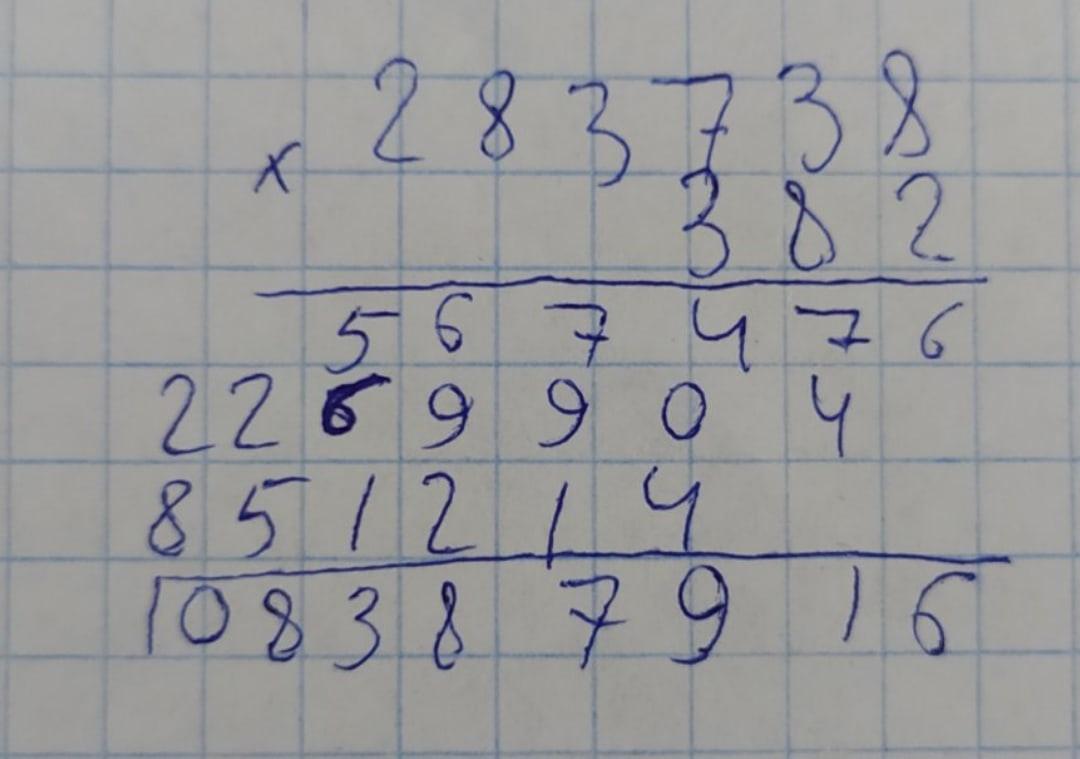 283738
× 382
567476
2269904
851214
108387916